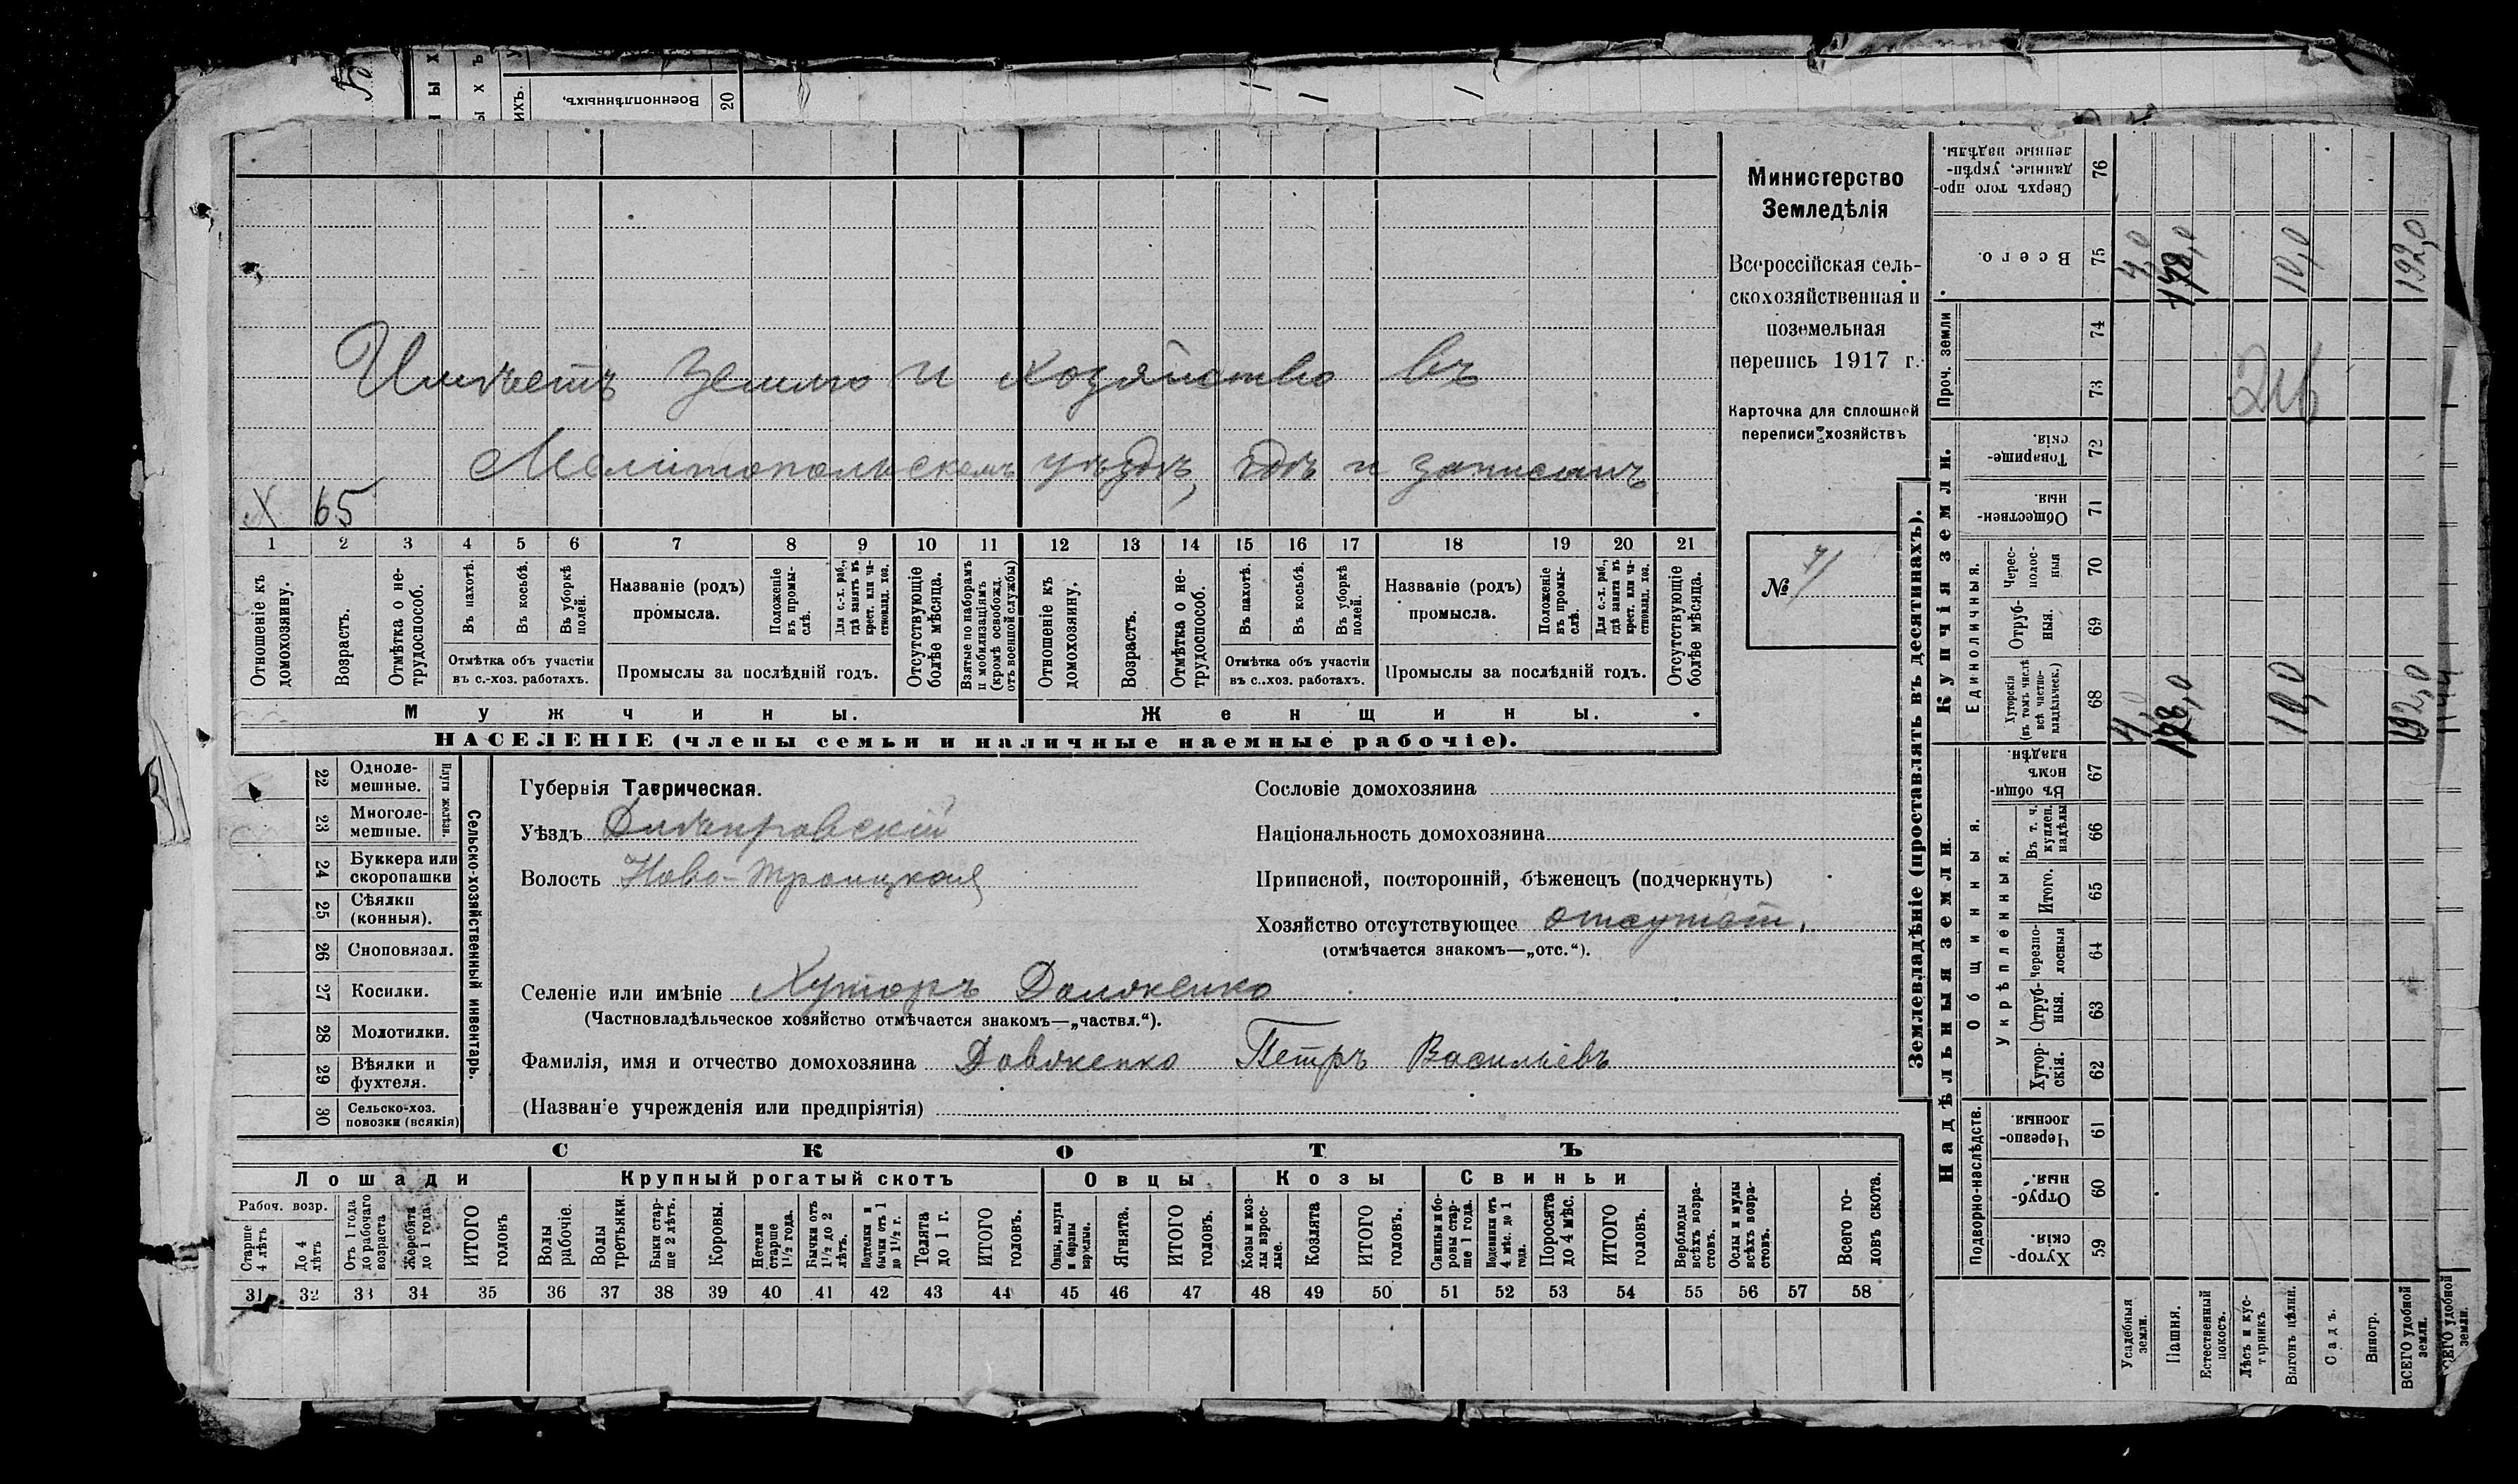 Военноплѣнныхъ,
20
Министерство
Земледѣлія
Всероссійская сель-
скохозяйственная и
поземельная
перепись 1917 г.
Карточка для сплошной
переписи хозяйствъ
№ 71
Имѣетъ землю и хозяйство въ
Мелитопольскомъ уѣздѣ, гдѣ и записанъ
X 65
1 2 3 4 5 6 7 8 9 10 11 12 13 14 15 16 17 18 19 20 21
Отношеніе къ домохозяину.
Возрастъ.
Отмѣтка о не-трудоспособ.
Въ пахотѣ.
Въ косьбѣ.
Въ уборкѣ полей.
Отмѣтка объ участіи
въ с.-хоз. работахъ.
Названіе (родъ)
промысла.
Положеніе въ промы-слѣ.
Для с.-х. раб., гдѣ занятъ въ крест. или ча-стновлад. хоз.
Промыслы за послѣдній годъ.
Отсутствующіе болѣе мѣсяца.
Взятые по наборамъ и мобилизаціямъ (кромѣ освобожд. отъ военной службы)
Отношеніе къ домохозяину.
Возрастъ.
Отмѣтка о не-трудоспособ.
Въ пахотѣ.
Въ косьбѣ.
Въ уборкѣ полей.
Отмѣтка объ участіи
въ с.-хоз. работахъ.
Названіе (родъ)
промысла.
Положеніе въ промы-слѣ.
Для с.-х. раб., гдѣ занятъ въ крест. или ча-стновлад. хоз.
Промыслы за послѣдній годъ.
Отсутствующіе болѣе мѣсяца.
Мужчины.
Женщины.
НАСЕЛЕНІЕ (члены семьи и наличные наемные рабочіе).
22 Одноле-мешные.
23 Многоле-мешные.
Плуги желѣзн.
24 Буккера или скоропашки
25 Сѣялки (конныя).
26 Сноповязал.
27 Косилки.
28 Молотилки.
29 Вѣялки и фухтеля.
30 Сельско-хоз. повозки (всякія)
Сельско-хозяйственный инвентарь.
Губернія Таврическая.
Уѣздъ Днѣпровскій
Волость Ново-Троицкая
Сословіе домохозяина
Національность домохозяина
Приписной, посторонній, бѣженецъ (подчеркнуть)
Хозяйство отсутствующее отсутст.
(отмѣчается знакомъ—„отс.“).
Селеніе или имѣніе Хуторъ
(Частновладѣльческое хозяйство отмѣчается знакомъ—„частвл.“).
Фамилія, имя и отчество домохозяина Довженко Петръ Васильевъ
(Названіе учрежденія или предпріятія)
СКОТЪ
Лошади
Крупный рогатый скотъ
Овцы
Козы
Свиньи
Рабоч. возр.
Старше 4 лѣтъ
До 4 лѣтъ
Отъ 1 года до рабочаго возраста
Жеребята до 1 года
ИТОГО головъ
Волы рабочіе.
Волы третьяки.
Быки стар-ше 2 лѣтъ.
Коровы.
Нетели старше 1½ года.
Бычки отъ 1½ до 2 лѣтъ.
Подтелки и бычки отъ 1 до 1½ г.
Телята до 1 г.
ИТОГО головъ.
Овцы, валухи и бараны взрослые.
Ягнята.
ИТОГО головъ.
Козы и коз-лы взрос-лые.
Козлята
ИТОГО головъ.
Свиньи и бо-ровы стар-ше 1 года.
Подсвинки отъ 4 мѣс. до 1 года.
Поросята до 4 мѣс.
ИТОГО головъ.
Верблюды всѣхъ возра-стовъ.
Ослы и мулы всѣхъ возра-стовъ.
Всего го-ловъ скота.
31 32 33 34 35 36 37 38 39 40 41 42 43 44 45 46 47 48 49 50 51 52 53 54 55 56 57 58
Землевладѣніе (проставлять въ десятинахъ).
Сверхъ того про-данные, укрѣп-ленные надѣлы. 76
Всего. 75 4,0 178,0 10,0 192,0
Проч. земли 74 73
Купчія земли.
Товарище-скія. 72
Обществен-ныя. 71
Единоличныя.
Черес-полос-ныя 70
Отруб-ныя. 69
Хуторскія (въ томъ числѣ всѣ частно-владѣльческ.) 68 4,0 178,0 10,0 192,0
Надѣльныя земли.
Общинныя.
Въ общи-номъ владѣн. 67
Укрѣпленныя.
Въ т. ч. куплен. надѣлы 66
Итого. 65
Черезпо-лосныя 64
Отруб-ныя. 63
Хутор-скія. 62
Подворно-наслѣдств.
Черезпо-лосныя 61
Отруб-ныя. 60
Хутор-скія. 59
Усадебныя земли.
Пашня.
Естественный покосъ.
Лѣсъ и кус-тарникъ.
Выгонъ цѣлин.
Садъ.
Виногр.
ВСЕГО удобной земли.